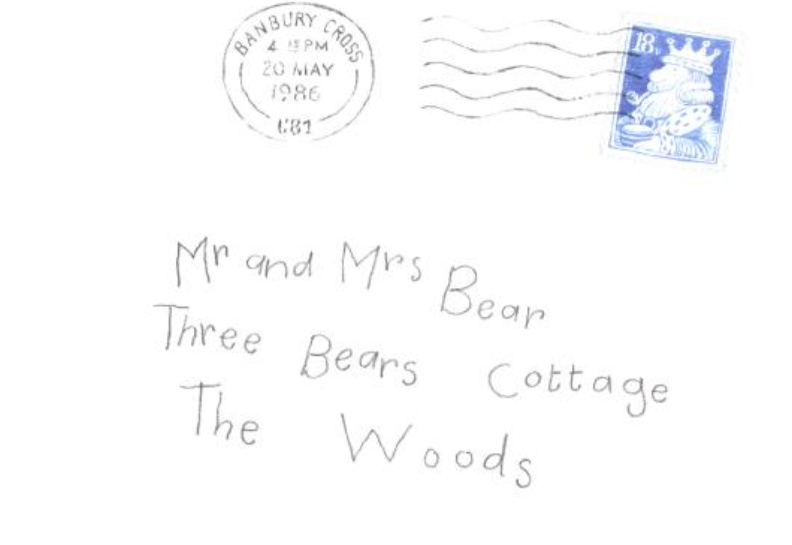 BANBURY CROSS
4 15 PM
20 MAY
1986
18p
Mr and Mrs Bear
Three Bears Cottage
The Woods